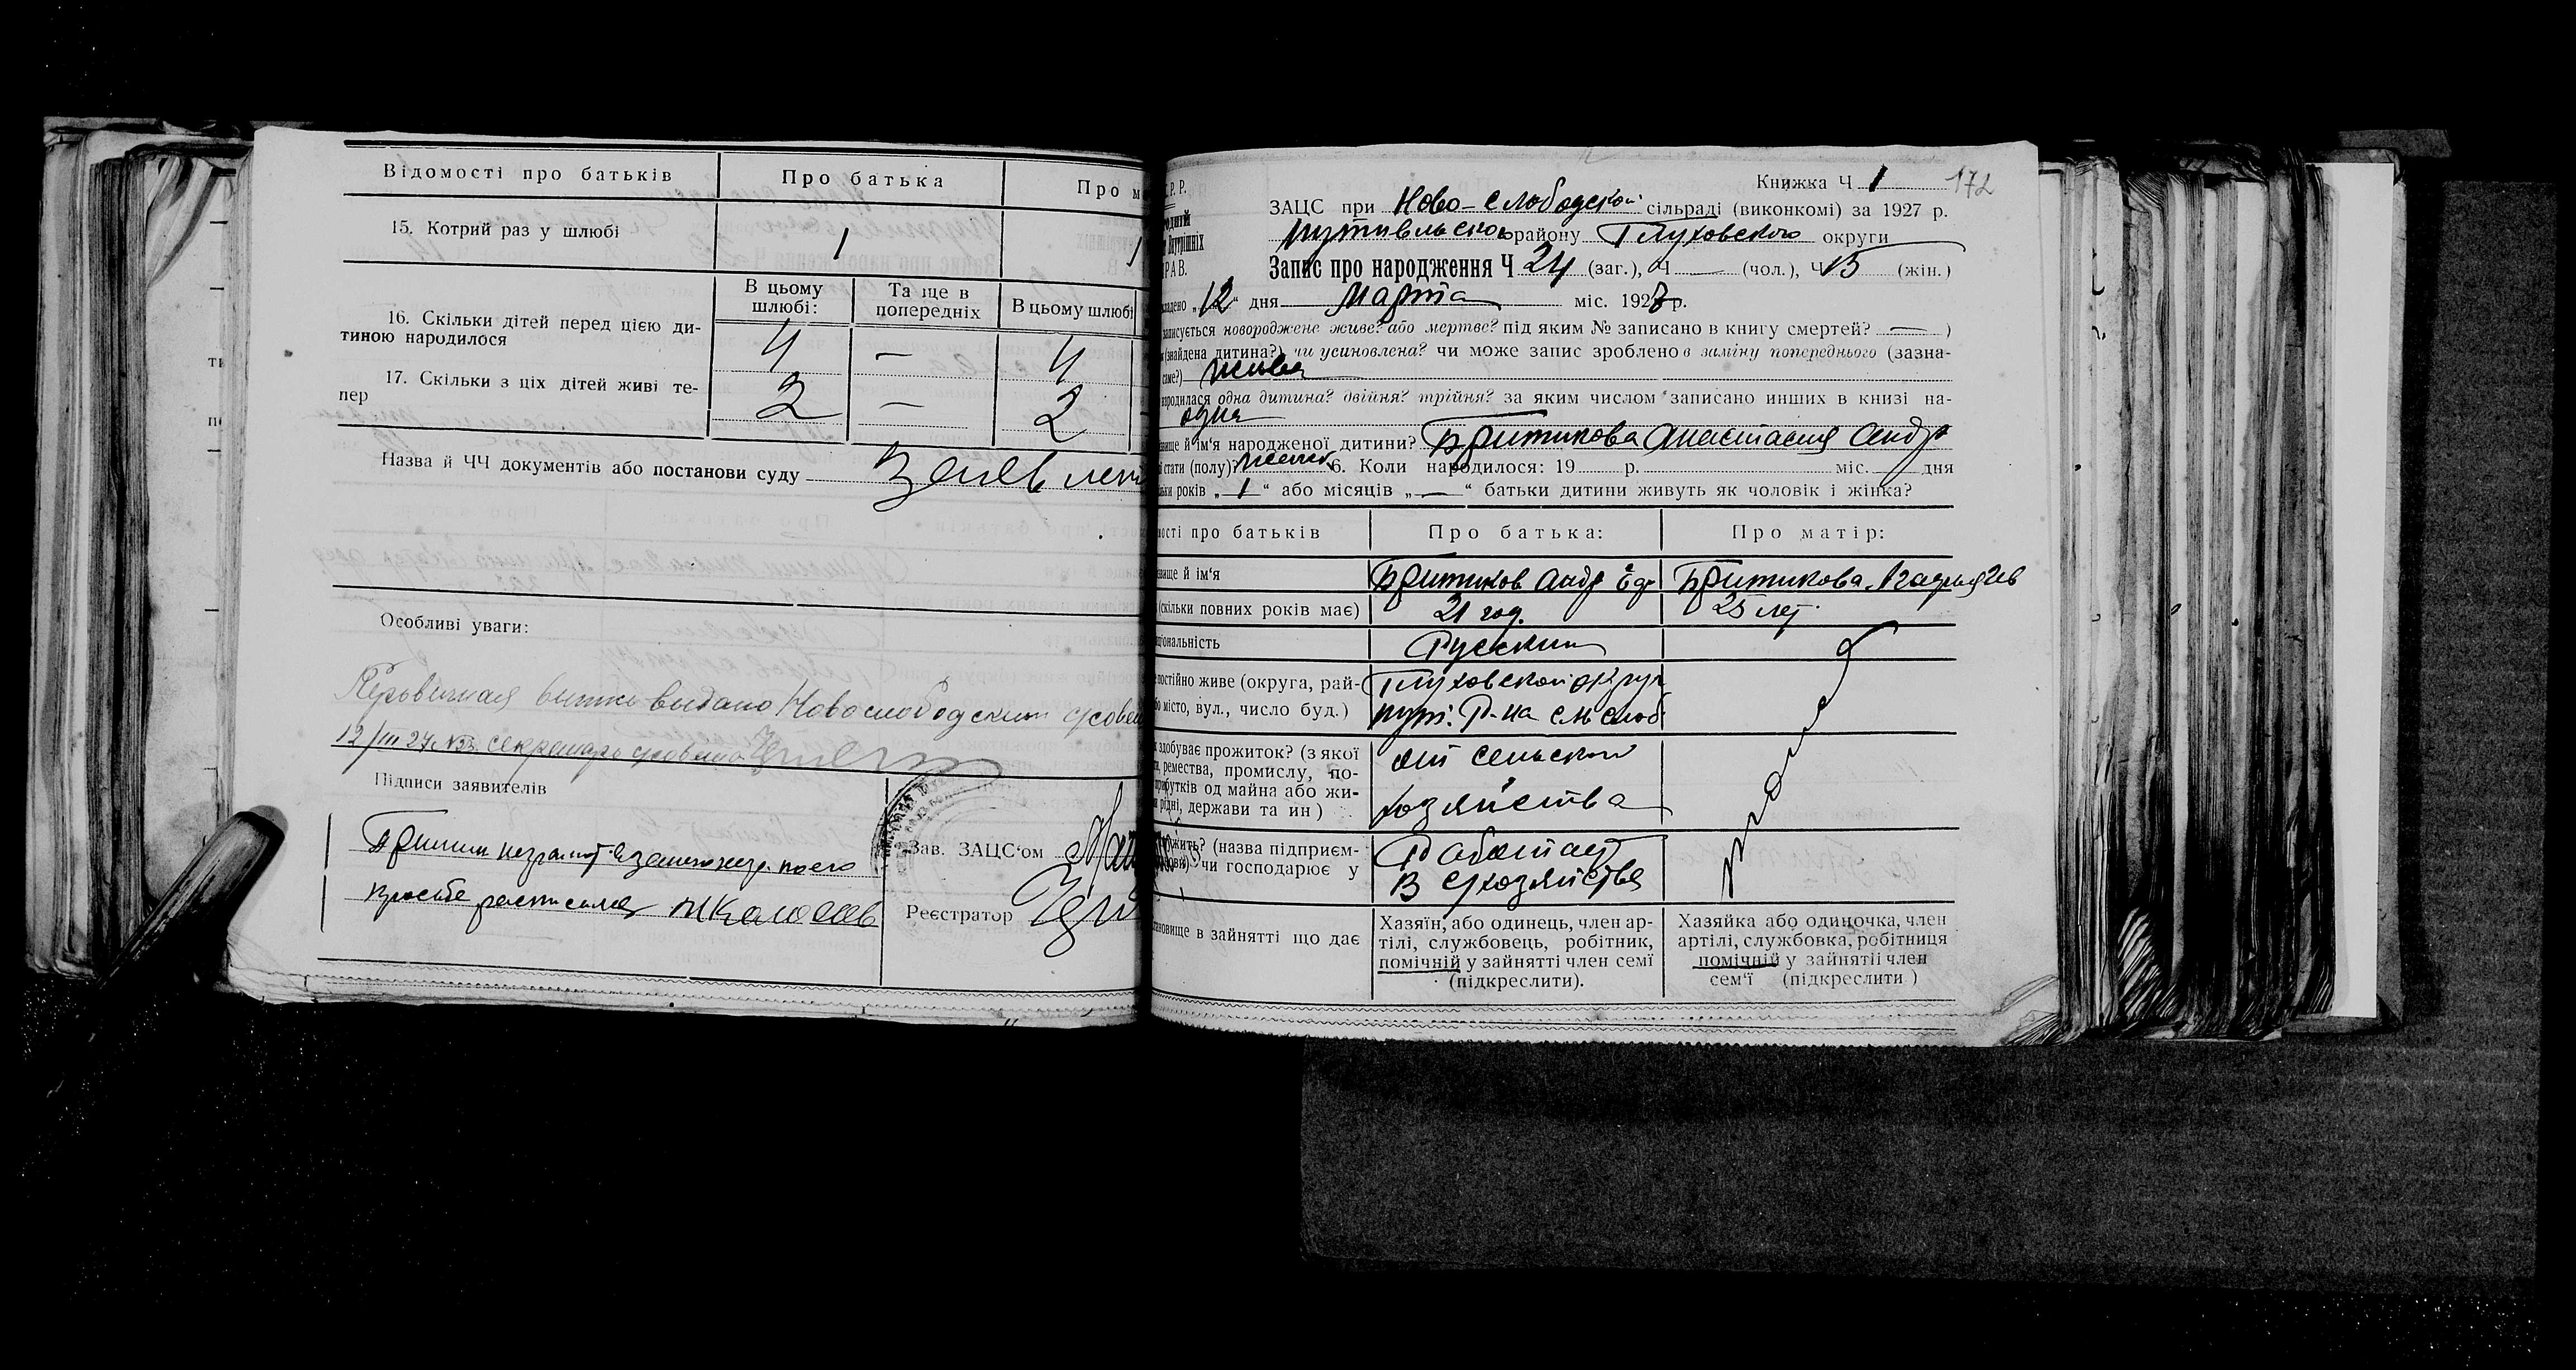 Відомості про батьків
Про батька
Про м
15. Котрий раз у шлюбі
1
1
В цьому шлюбі:
Та ще в попередніх
В цьому шлюбі
16. Скільки дітей перед цією ди-
тиною народилося
4
—
4
17. Скільки з ціх дітей живі те-
пер
2
—
2
Назва й ЧЧ документів або постанови суду
Особливі уваги:
выдано Новослободским
12/III 27 г. секретарь
Підписи заявителів
Зав. ЗАЦС‘ом
просьбе
Реєстратор
Р. Р.
РАВ.
Книжка Ч 1
172
ЗАЦС при Ново-Слободской сільраді (виконкомі) за 1927 р.
Путивльского району Глуховского округи
Запис про народження Ч 24 (заг.), Ч — (чол.), Ч 15 (жін.)
„12“ дня Марта міс. 1927 р.
записується новороджене живе? або мертве? під яким № записано в книгу смертей? — )
(знайдена дитина?) чи усиновлена? чи може запис зроблено в заміну попереднього (зазна-
саме?) живая
народилася одна дитина? двійня? трійня? за яким числом записано инших в книзі на-
одна
й ім‘я народженої дитини? Бритикова Анастасия Андр
стати (полу)? женск 6. Коли народилося: 19 р. міс. дня
років „1“ або місяців „—“ батьки дитини живуть як чоловік і жінка?
про батьків
Про батька:
Про матір:
й ім‘я
Бритиков Андр Егр
Бритикова
(скільки повних років має)
21 год.
25 лет
Русский
постійно живе (округа, рай-
місто, вул., число буд.)
Глуховской округ
пут. Р-на с. Н Слоб
здобуває прожиток? (з якої
ремества, промислу, по-
прибутків од майна або жи-
рідні, держави та ин)
от сельского
хозяйства
(назва підприєм-
чи господарює у
Работает
в с/хозяйстве
в зайнятті що дає
Хазяїн, або одинець, член ар-
тілі, службовець, робітник,
помічній у зайнятті член семї
(підкреслити).
Хазяйка або одиночка, член
артілі, службовка, робітниця
помічній у зайнятії член
сем‘ї (підкреслити )